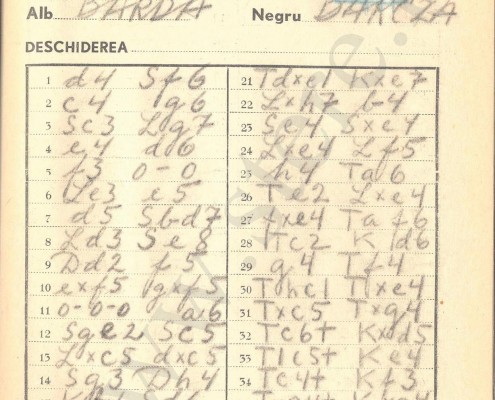 Alb BARDA
Negru BARCZA
DESCHIDEREA
1 d4 Sf6
2 c4 g6
3 Sc3 Lg7
4 e4 d6
5 f3 0-0
6 Le3 e5
7 d5 Sb-d7
8 Ld3 Se8
9 Dd2 f5
10 exf5 gxf5
11 0-0-0 a6
12 Sge2 Sc5
13 Lxc5 dxc5
14 Sg3 Dh4
21 Tdxe1 Kxe7
22 Lxh7 b-4
23 Se4 Sxe4
24 Lxe4 Lf5
25 h4 Ta6
26 Te2 Lxe4
27 fxe4 Taf6
28 Tc2 Kd6
29 g4 Tf4
30 Thc1 Txe4
31 Txc5 Txg4
32 Tc6+ Kxd5
33 T1c5+ Ke4
34 Tc4+ Kf3